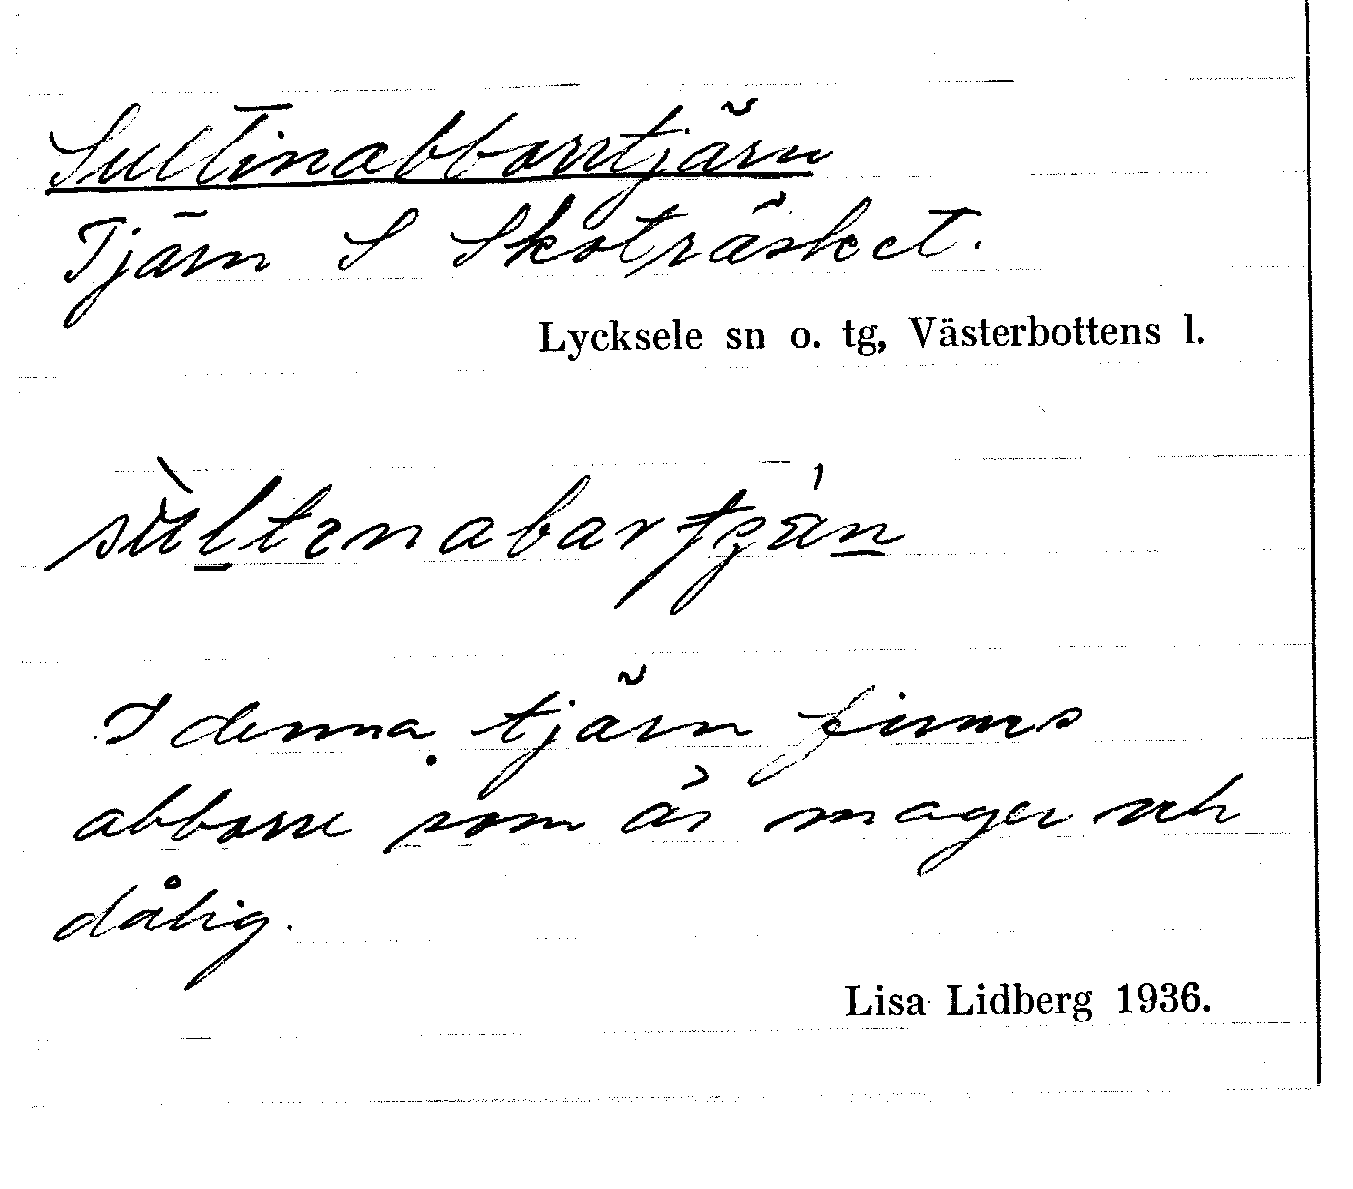 Sultinabborrtjärn
Tjärn S Skoträsket.
Lycksele sn o. tg, Västerbottens l.
I denna tjärn finns
abborre som är mager och
dålig.
Lisa Lidberg 1936.